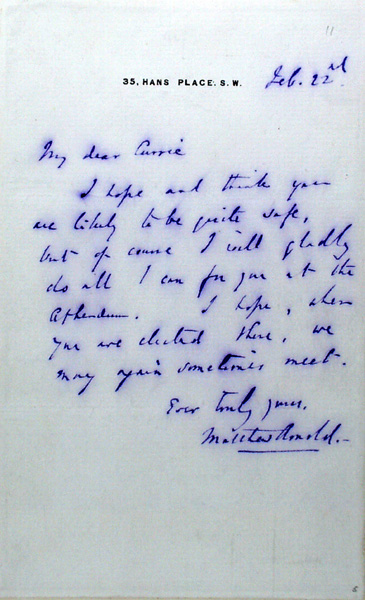 11
35, HANS PLACE. S. W.
Feb. 22nd.
My dear Currie
I hope and think you
are likely to be quite safe,
but of course I will gladly
do all I can for you at the
Athenaeum. I hope, when
you are elected there, we
may again sometimes meet.
Ever truly yours,
Matthew Arnold.-
6